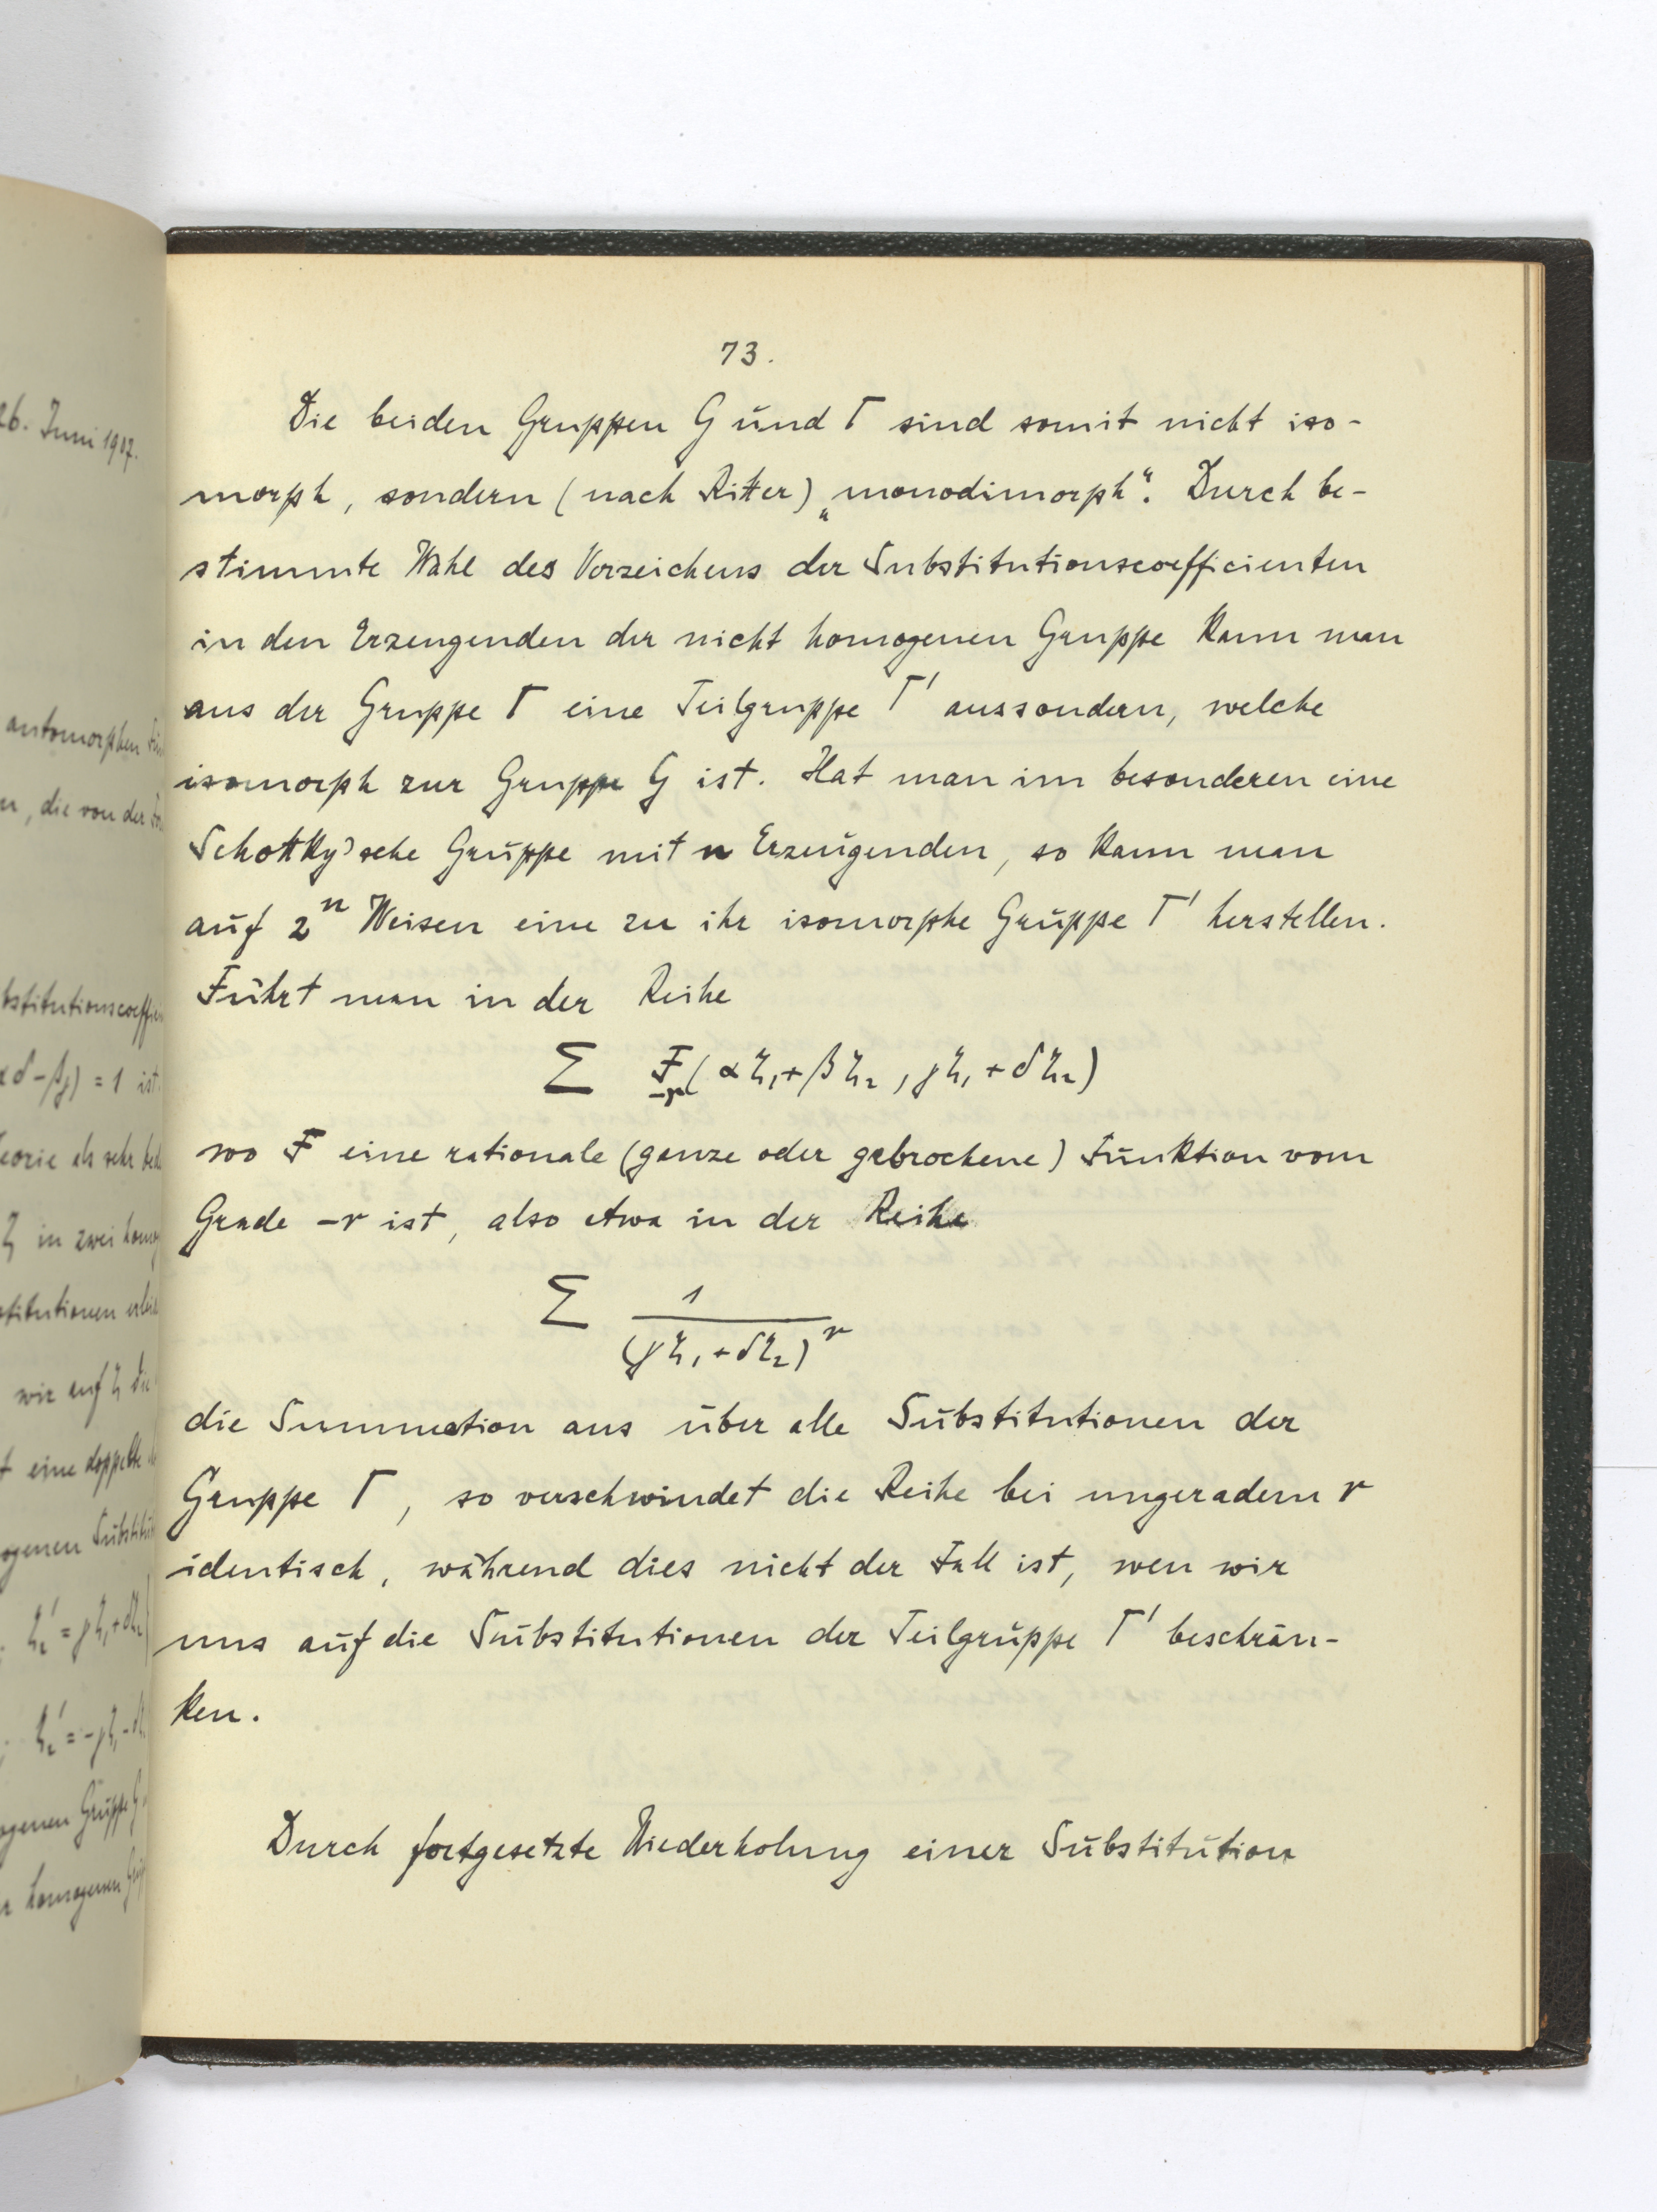 26. Juni 1907.
automorphen
, die von der
= 1 ist
in zwei
wir auf ζ die
eine doppelte
homogenen
73.
Die beiden Gruppen G und Γ sind somit nicht iso-
morph, sondern (nach Ritter) „monodimorph“. Durch be-
stimmte Wahl des Vorzeichens der Substitutionscoefficienten
in den Erzeugenden der nicht homogenen Gruppe kann man
aus der Gruppe Γ eine Teilgruppe Γ' aussondern, welche
isomorph zur Gruppe G ist. Hat man im besonderen eine
Schottky'sche Gruppe mit n Erzeugenden, so kann man
auf 2ⁿ Weisen eine zu ihr isomorphe Gruppe Γ' herstellen.
Führt man in der Reihe
Σ F₋ᵣ(αζ₁+βζ₂, γζ₁+δζ₂)
wo F eine rationale (ganze oder gebrochene) Funktion vom
Grade -r ist, also etwa in der Reihe
Σ 1/(γζ₁+δζ₂)ʳ
die Summation aus über alle Substitutionen der
Gruppe Γ, so verschwindet die Reihe bei ungeradem r
identisch, während dies nicht der Fall ist, wen wir
uns auf die Substitutionen der Teilgruppe Γ' beschrän-
ken.
Durch fortgesetzte Wiederholung einer Substitution